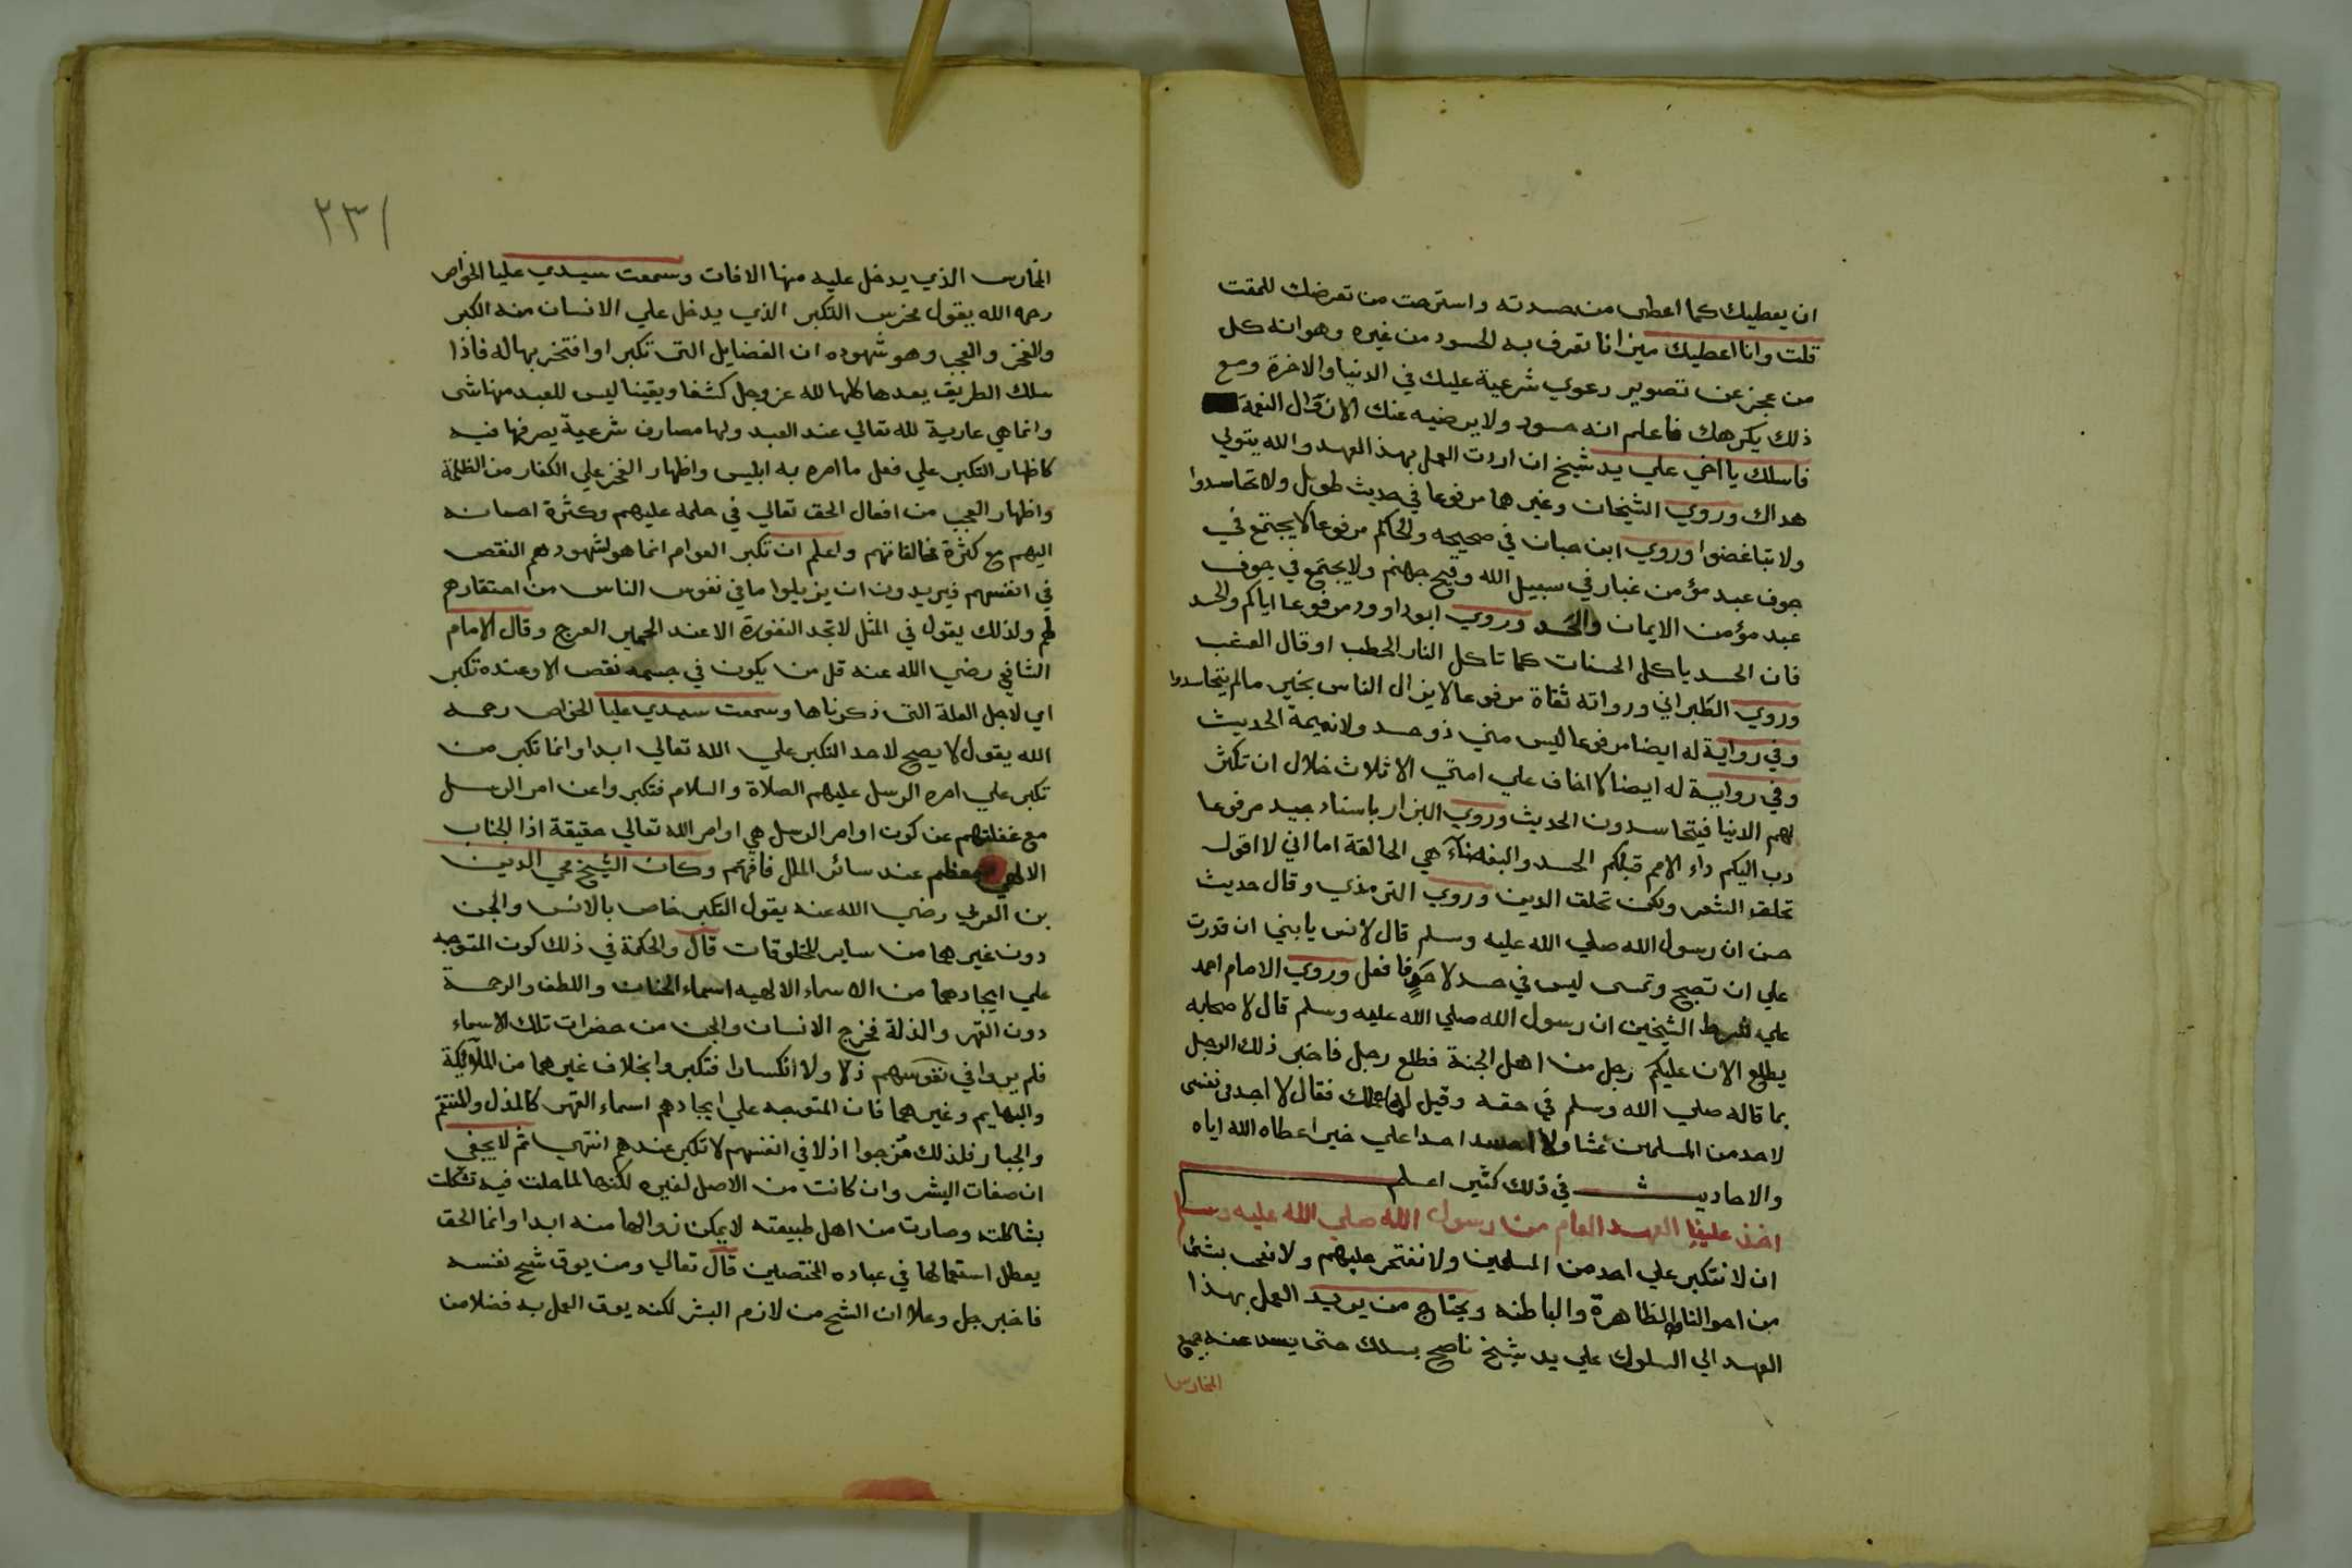 ان يعطيك كما اعطى من حسدته واسترحت من تعرضك للمقت
قلت وانا اعطيك ميزانا تعرف به الحسود من غيره وهو انه كل
من عجز عن تصوير دعوي شرعية عليك في الدنيا والاخرة ومع
ذلك يكرهك فاعلم انه حسود ولا يرضيه عنك الا زوال النعمة
فاسلك يا اخي علي يد شيخ ان اردت العمل بهذا العهد والله يتولي
هداك وروي الشيخان وغيرهما مرفوعا في حديث طويل ولا تحاسدوا
ولا تباغضوا وروي ابن حبان في صحيحه والحاكم مرفوعا لا يجتمع في
جوف عبد مؤمن غبار في سبيل الله وفيح جهنم ولا يجتمع في جوف
عبد مؤمن الايمان والحسد وروي ابو داوود مرفوعا اياكم والحسد
فان الحسد ياكل الحسنات كما تاكل النار الحطب او قال العشب
وروي الطبراني ورواته ثقاة مرفوعا لا يزال الناس بخير ما لم يتحاسدوا
وفي رواية له ايضا مرفوعا ليس مني ذو حسد ولا نميمة الحديث
وفي رواية له ايضا لا اخاف علي امتي الا ثلاث خلال ان تكثر
لهم الدنيا فيتحاسدون الحديث وروي البزار باسناد جيد مرفوعا
دب اليكم داء الامم قبلكم الحسد والبغضاء هي الحالقة اما اني لا اقول
تحلق الشعر ولكن تحلق الدين وروي الترمذي وقال حديث
حسن ان رسول الله صلي الله عليه وسلم قال لانس يا بني ان قدرت
علي ان تصبح وتمسى ليس في صدرك فافعل وروي الامام احمد
علي شرط الشيخين ان رسول الله صلي الله عليه وسلم قال لاصحابه
يطلع الان عليكم رجل من اهل الجنة فطلع رجل فاخبر ذلك الرجل
بما قاله صلي الله وسلم في حقه وقيل له فقال لا اجد في نفسى
لاحد من المسلمين غشا ولا احسد احدا علي خير اعطاه الله اياه
والاحاديث في ذلك كثير اعلم
اخذ علينا العهد العام من رسول الله صلي الله عليه وسلم
ان لا نتكبر علي احد من المسلمين ولا نفتخر عليهم ولا نعجب بشئ
من احوالنا الظاهرة والباطنه ويحتاج من يريد العمل بهذا
العهد الي السلوك علي يد شيخ ناصح يسلك حتى يسد عنه جميع
المخارس
٢٣١
المخارس الذي يدخل عليه منها الافات وسمعت سيدي عليا الخواص
رحمه الله يقول مخرس التكبر الذي يدخل علي الانسان منه الكبر
والفخر والعجب وهو شهوده ان الفضايل التى تكبر او افتخر بها له فاذا
سلك الطريق يعدها كلها لله عز وجل كشفا ويقينا ليس للعبد منها شى
وانما هي عارية لله تعالي عند العبد ولها مصارف شرعية يصرفها فيه
كاظهار التكبر علي فعل ما امره به ابليس واظهار الفخر علي الكفار من الظلمة
واظهار العجب من افعال الحق تعالي في حلمه عليهم وكثرة احسانه
اليهم مع كثرة مخالفاتهم واعلم ان تكبر العوام انما هو لشهودهم النقص
في انفسهم فيريدون ان يزيلوا ما في نفوس الناس من احتقارهم
لهم ولذلك يقول في المثل لا تجد النفورة الا عند الحمير العرج وقال الامام
الشافعي رضي الله عنه قل من يكون في جسمه نقص الا وعنده تكبر
اي لاجل العلة التى ذكرناها وسمعت سيدي عليا الخواص رحمه
الله يقول لا يصح لاحد التكبر علي الله تعالي ابدا وانما تكبر من
تكبر علي امره الرسل عليهم الصلاة والسلام فتكبروا عن امر الرسل
مع غفلتهم عن كون اوامر الرسل هي اوامر الله تعالي حقيقة اذا الجناب
الالهي معظم عند سائر الملل فافهم وكان الشيخ محي الدين
بن العربي رضي الله عنه يقول التكبر خاص بالانس والجن
دون غيرهما من ساير المخلوقات قال والحكمة في ذلك كون المتوجه
علي ايجادهما من الاسماء الالهيه اسماء الحنان واللطف والرحمة
دون القهر والذلة فخرج الانسان والجن من حضرات تلك الاسماء
فلم يروا في نفوسهم ذلا ولا انكسارا فتكبروا بخلاف غيرهما من الملائكة
والبهايم وغيرهما فان المتوجه علي ايجادهم اسماء القهر كالمذل والمنتقم
والجبار فلذلك خرجوا اذلا في انفسهم لا تكبر عندهم انتهي ثم لا يخفي
ان صفات البشر وان كانت من الاصل لغيره لكنها لما حلت فيه تشكلت
بشاكلته وصارت من اهل طبيعته لا يمكن زوالها منه ابدا وانما الحق
يعطل استعمالها في عباده المختصين قال تعالي ومن يوق شح نفسه
فاخبر جل وعلا ان الشح من لازم البشر لكنه يوق العمل به فضلا من